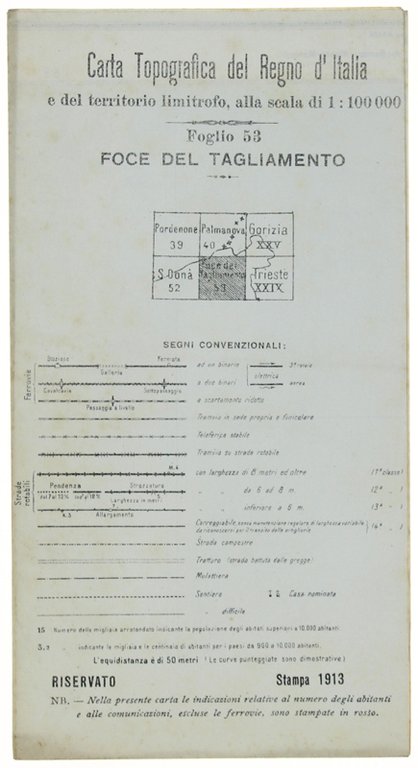 Carta Topografica del Regno d'Italia
e del territorio limitrofo, alla scala di 1 : 100 000
Foglio 53
FOCE DEL TAGLIAMENTO
Pordenone Palmanova Gorizia
39 40 XXV
S. Donà Foce del Tagliamento Trieste
52 53 XXIX
SEGNI CONVENZIONALI:
Ferrovie
Stazione Fermata
Galleria
ad un binario
elettrica
Cavalcavia Sottopassaggio
a due binari
aerea
Passaggio a livello
a scartamento ridotto
Tramvia in sede propria o funicolare
Teleferica stabile
Tramvia su strada rotabile
Strade rotabili
M.4
con larghezza di 8 metri ed oltre (1ª classe)
Pendenza Strozzatura
da 6 ad 8 m. (2ª " )
Larghezza in metri
inferiore a 6 m. (3ª " )
4.5 Allargamento
Carreggiabile, senza manutenzione regolare di larghezza variabile (4ª " )
Strada campestre
Tratturo (strada battuta dalle gregge)
Mulattiera
Sentiero Casa nominata
" difficile
15 Numero delle migliaia arrotondato indicante la popolazione degli abitati superiori a 10.000 abitanti.
3,2 " indicante le migliaia e le centinaia di abitanti per i paesi da 900 a 10.000 abitanti.
L'equidistanza é di 50 metri (Le curve punteggiate sono dimostrative)
RISERVATO Stampa 1913
NB. — Nella presente carta le indicazioni relative al numero degli abitanti
e alle comunicazioni, escluse le ferrovie, sono stampate in rosso.